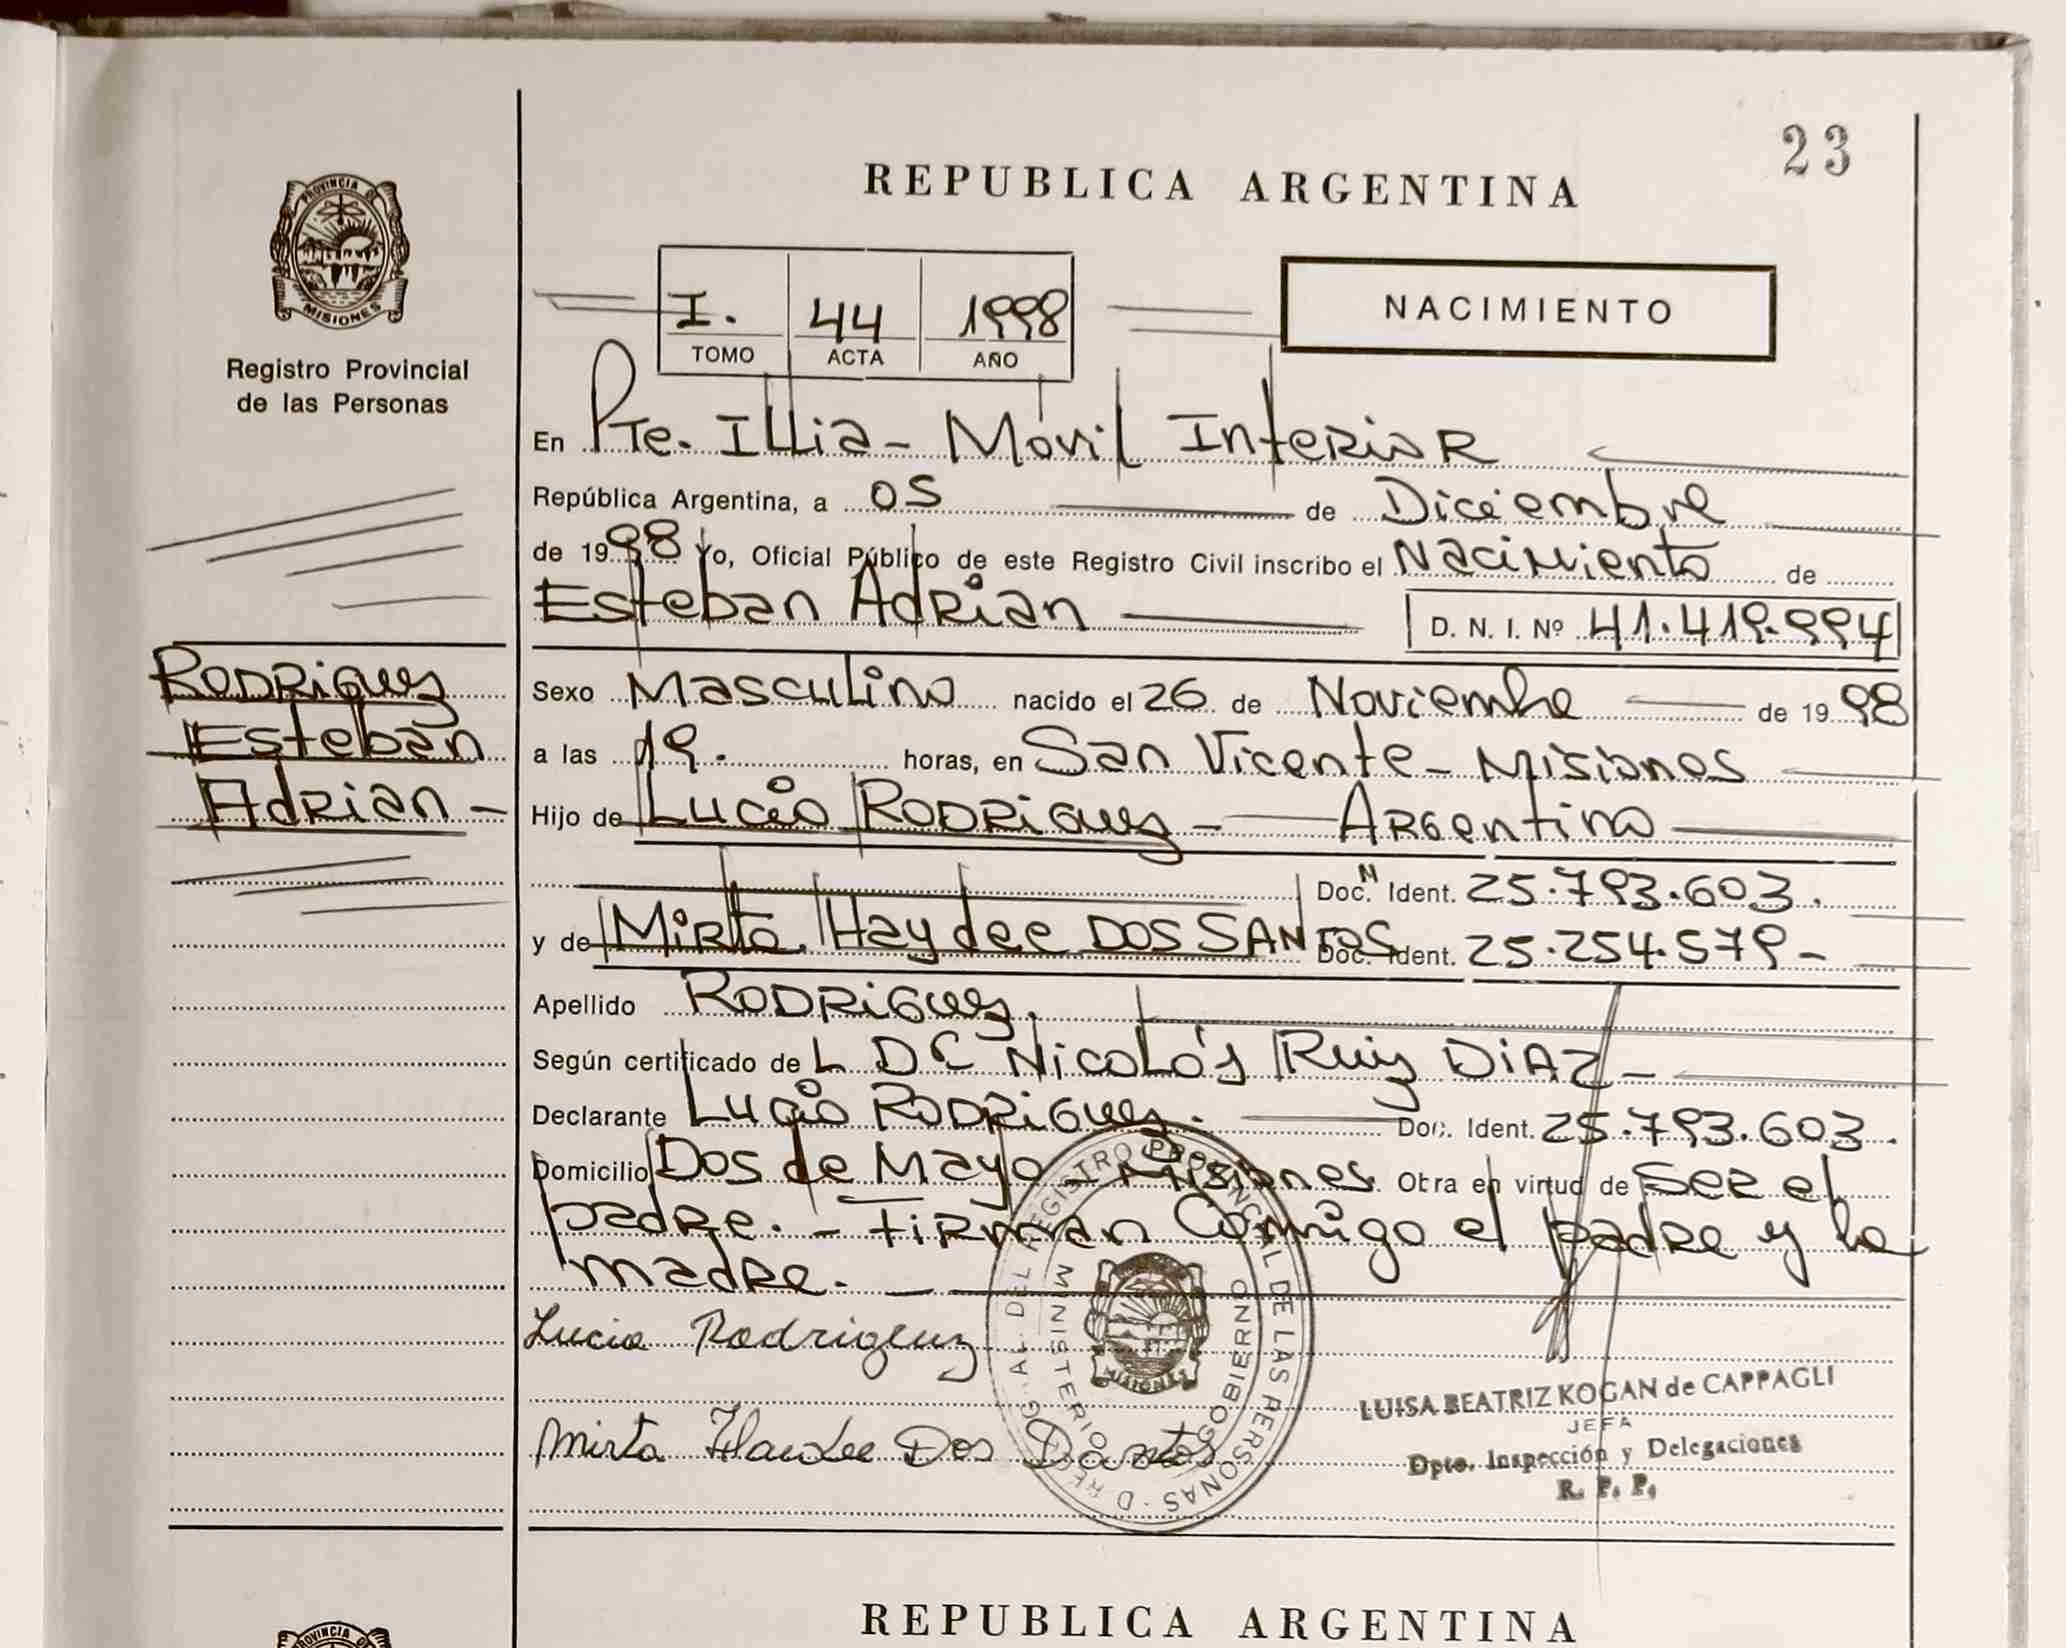 23
REPUBLICA ARGENTINA
PROVINCIA DE
MISIONES
Registro Provincial
de las Personas
I. 44 1998
TOMO ACTA AÑO
NACIMIENTO
En Pte. Illia - Móvil Interior
República Argentina, a 05 de Diciembre
de 1998 Yo, Oficial Público de este Registro Civil inscribo el Nacimiento de
Esteban Adrian D. N. I. Nº 41.419.994
Rodriguez
Esteban
Adrian -
Sexo Masculino nacido el 26 de Noviembre de 1998
a las 19. horas, en San Vicente - Misiones
Hijo de Lucio RODRiguez - Argentino
Doc. N Ident. 25.793.603.
y de Mirta Haydee DOS SANTOS Doc. Ident. 25.254.579 -
Apellido RODRiguez.
Según certificado de L D C Nicolás Ruiz DiAZ -
Declarante Lucio RODRiguez. Doc. Ident. 25.793.603.
Domicilio Dos de Mayo - Misiones. Otra en virtud de ser el
padre. - Firman Comigo el padre y la
madre. -
Lucio Rodriguez
Mirta Haydee Dos Santos
REGISTRO PROVINCIAL DE LAS PERSONAS
MINISTERIO GOBIERNO
MISIONES
LUISA BEATRIZ KOGAN de CAPPAGLI
JEFA
Dpto. Inspección y Delegaciones
R. P. P.
REPUBLICA ARGENTINA
PROVINCIA DE